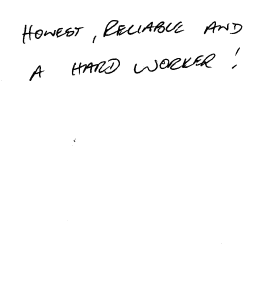 HONEST, RELIABLE AND
A HARD WORKER!